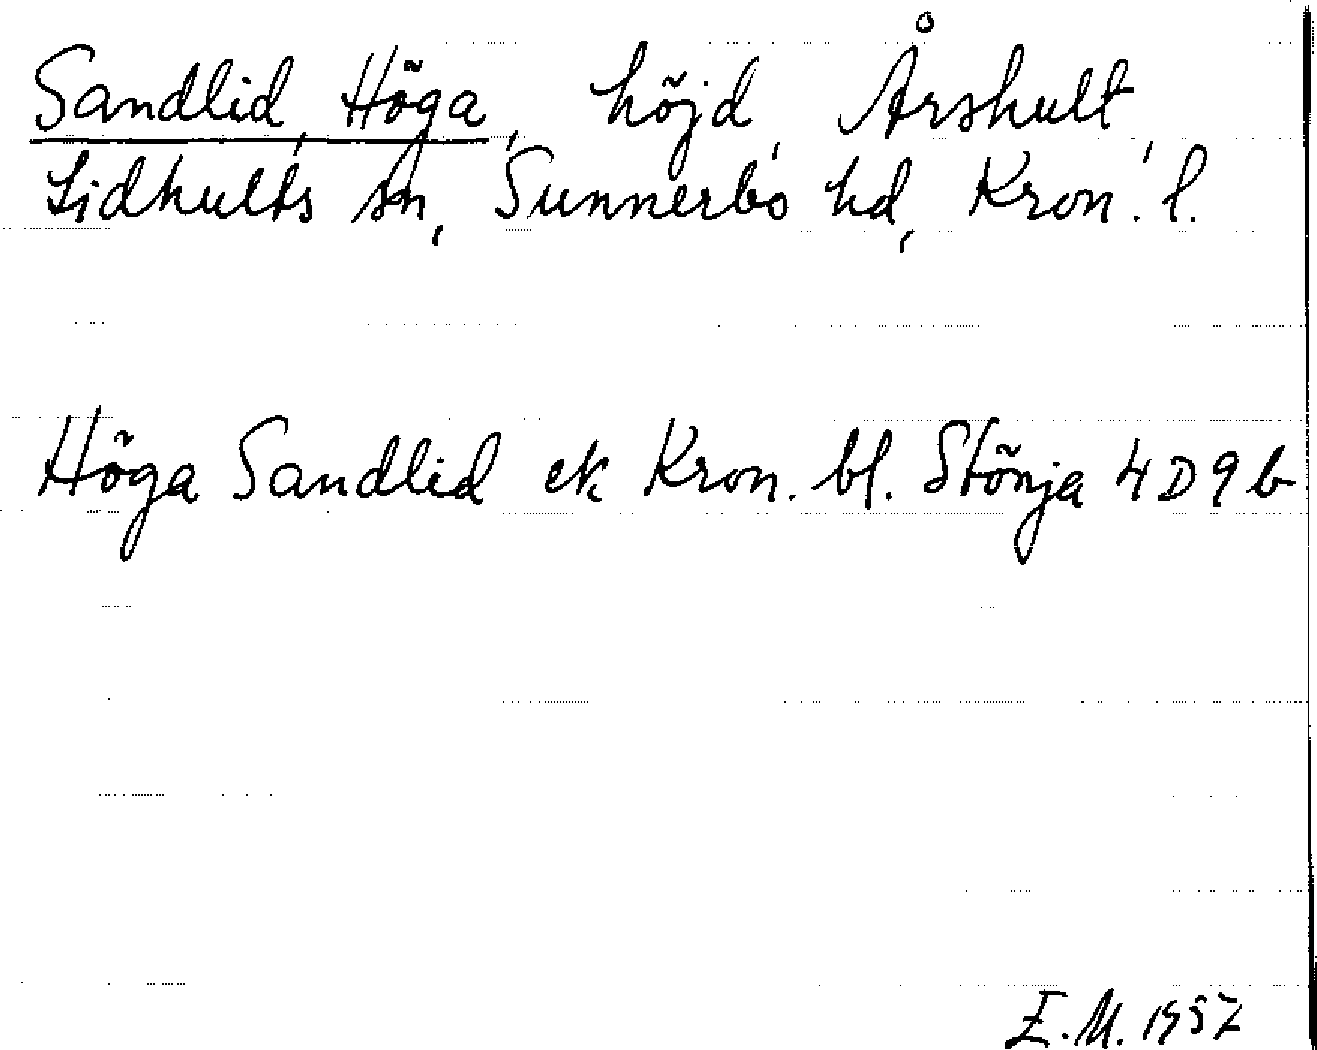 Sandlid, Höga, höjd, Årshult,
Lidhults sn, Sunnerbo hd, Kron. l.
Höga Sandlid ek Kron. bl. Stönja 4D9b
E.M. 1957